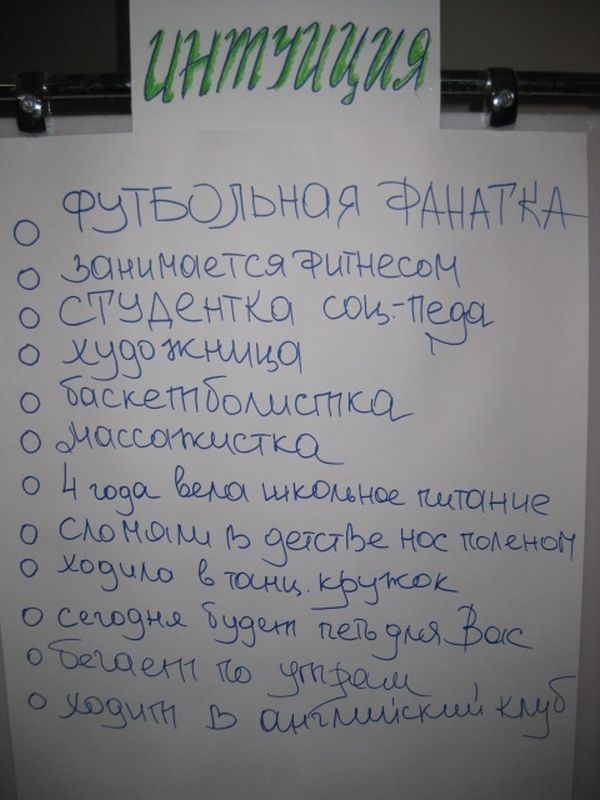 ИНТУИЦИЯ
ФУТБОЛЬНАЯ ФАНАТКА
занимается фитнесом
СТУДЕНТКА соц.-педа
художница
баскетболистка
массажистка
4 года вела школьное питание
сломали в детстве нос поленом
ходила в танц. кружок
сегодня будет петь для Вас
бегает по утрам
ходит в английский клуб